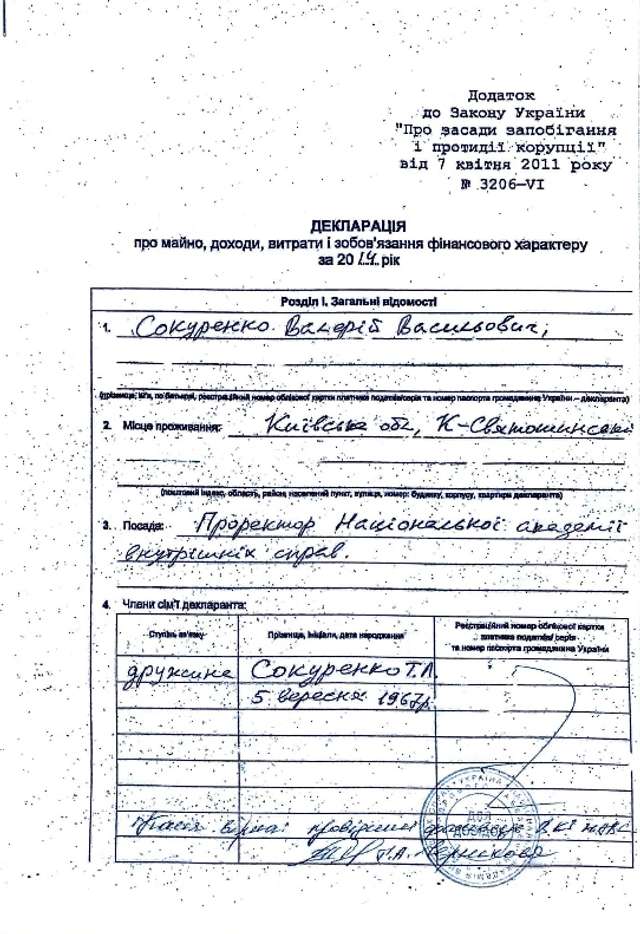 Додаток
до Закону України
"Про засади запобігання
і протидії корупції"
від 7 квітня 2011 року
№ 3206–VI
ДЕКЛАРАЦІЯ
про майно, доходи, витрати і зобов'язання фінансового характеру
за 2014 рік
Розділ І. Загальні відомості
1. Сокуренко Валерій Васильович,
(прізвище, ім'я, по батькові, реєстраційний номер облікової картки платника податків/серія та номер паспорта громадянина України – декларанта)
2. Місце проживання: Київська обл, К-Святошинський
(поштовий індекс, область, район, населений пункт, вулиця, номер: будинку, корпусу, квартири декларанта)
3. Посада: Проректор Національної академії
внутрішніх справ.
4. Члени сім'ї декларанта:
Ступінь зв'язку
Прізвище, ініціали, дата народження
Реєстраційний номер облікової картки
платника податків/ серія
та номер паспорта громадянина України
дружина Сокуренко Т.Л.
5 вересня 1967р.
вірна: провідний